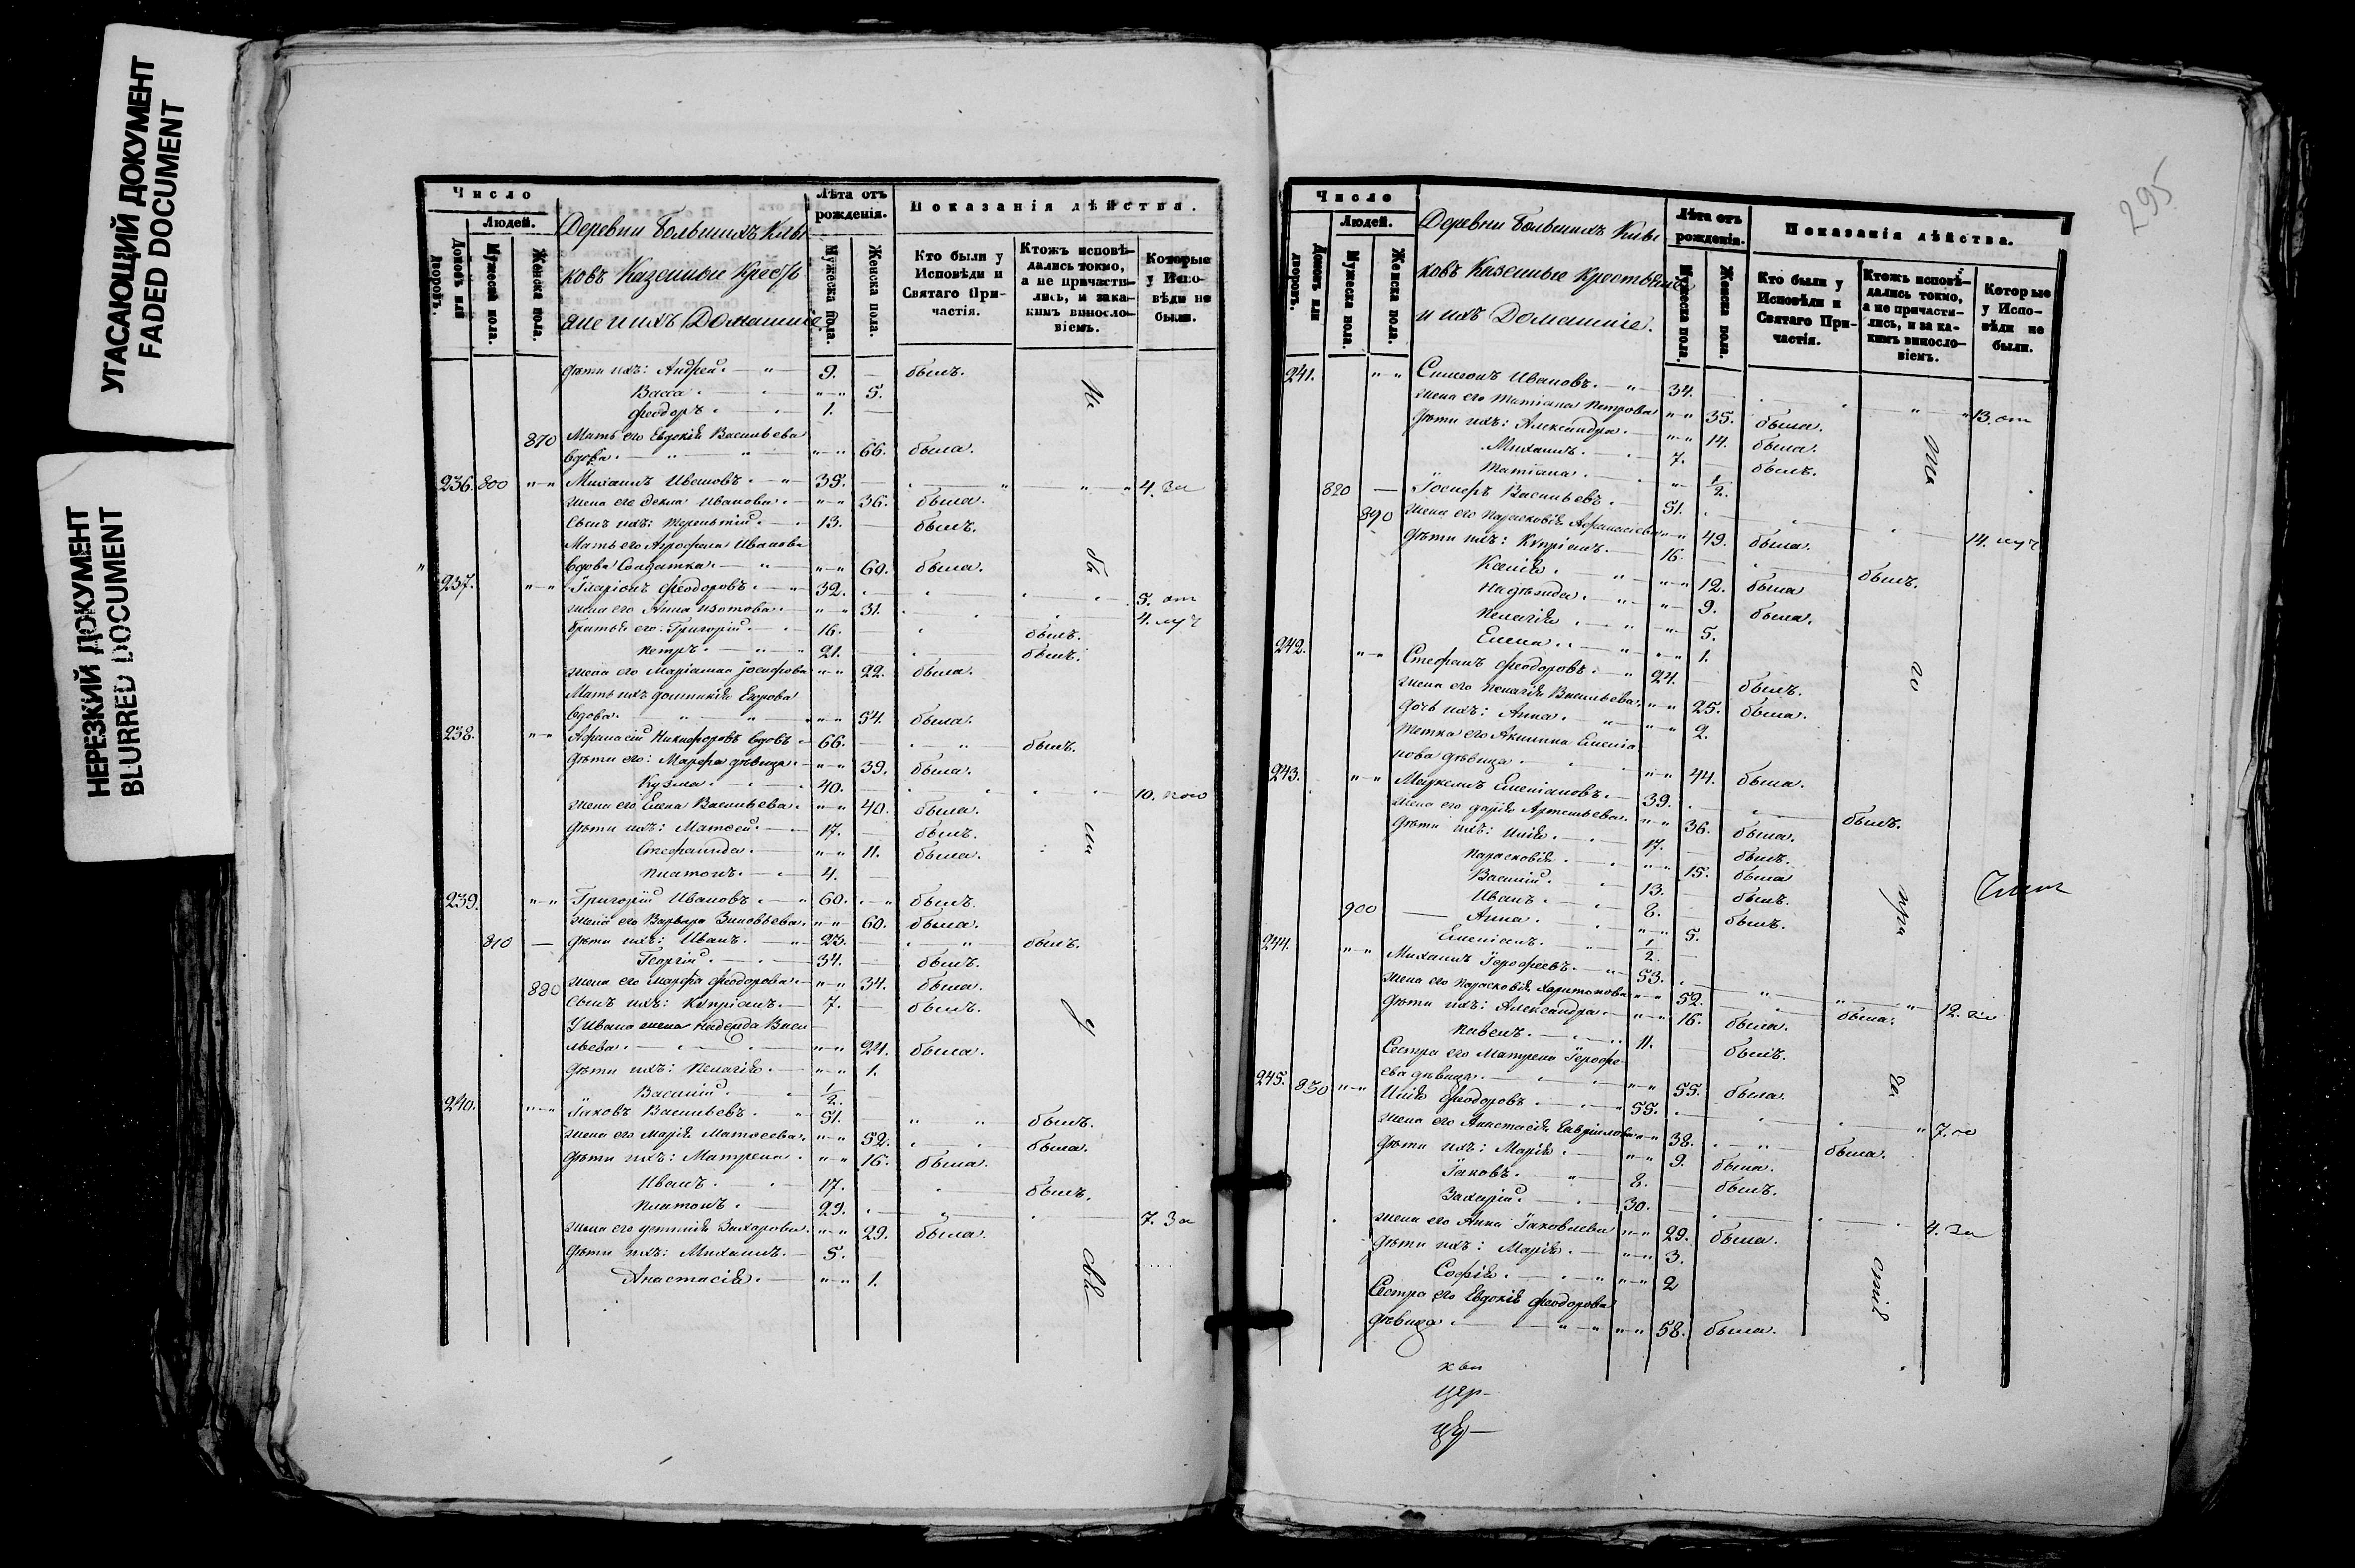 УГАСАЮЩИЙ ДОКУМЕНТ
FADED DOCUMENT
НЕРЕЗКИЙ ДОКУМЕНТ
BLURRED DOCUMENT
Число
Людей.
Домовъ или дворовъ.
Мужеска пола.
Женска пола.
Деревни Большихъ Клы
ковъ Казенные Кресть
яне и ихъ Домашніе
Лѣта отъ рожденія.
Мужеска пола.
Женска пола.
Показанія дѣйства.
Кто были у Исповѣди и Святаго Причастія.
Ктожъ исповѣдались токмо, а не причастились, и закакимъ винословіемъ.
Которые у Исповѣди не были.
дѣти ихъ: Андрей 9. былъ.
Васса 5.
Феодоръ 1.
870 Мать его Евдокія Васильева
вдова 66. была.
236. 800 Михаилъ Ивановъ 35. 4. за
жена его Фекла Иванова 36. была.
Сынъ ихъ: Терентій 13. былъ.
Мать его Агрофена Иванова
вдова Солдатка 60. была.
237. Іларіонъ Феодоровъ 32. 5. от
жена его Анна Изотова 31. 4. луч
братья его: Григорій 16. былъ.
Петръ 21. былъ.
жена его Маріамна Іосифова 22. была.
Мать ихъ Домникія Егорова
вдова 54. была.
238. Афанасій Никифоровъ вдовъ 66. былъ.
дѣти его: Марфа дѣвица 39. была.
Кузма 40. 10.
жена его Елена Васильева 40. была.
дѣти ихъ: Матѳей 17. былъ.
Стефанида 11. была.
Платонъ 4.
239. Григорій Ивановъ 60. былъ.
жена его Варвара Зиновьева 60. была.
810 дѣти ихъ: Иванъ 23. былъ.
Георгій 34. былъ.
880 жена его Марфа Феодорова 34. была.
Сынъ ихъ: Кѵпріанъ 7. былъ.
У Ивана жена Надежда Васи
льева 24. была.
дѣти ихъ: Пелагія 1.
Василій 1/2.
240. Іаковъ Васильевъ 51. былъ.
жена его Марія Матѳеева 52. была.
дѣти ихъ: Матрена 16. была.
Иванъ 17. былъ.
Платонъ 29. 7. За
жена его Захарова 29. была.
дѣти ихъ: Михаилъ 5.
Анастасія 1.
295
Число
Людей.
Домовъ или дворовъ.
Мужеска пола.
Женска пола.
Деревни Большихъ Клы
ковъ Казенные Крестьяне
и ихъ Домашніе.
Лѣта отъ рожденія.
Мужеска пола.
Женска пола.
Показанія дѣйства.
Кто были у Исповѣди и Святаго Причастія.
Ктожъ исповѣдались токмо, а не причастились, и за какимъ винословіемъ.
Которые у Исповѣди не были.
241. Симеонъ Ивановъ 34. 13. от
жена его Татіана Петрова 35. была.
дѣти ихъ: Александра 14. была.
Михаилъ 7. былъ.
Татіана 1/2.
820 Іосифъ Васильевъ 51. 14. луч
890 жена его Парасковія Афанасіева 49. была.
дѣти ихъ: Кѵпріанъ 16. былъ.
Ксенія 12. была
Надежда 9. была.
Пелагія 5.
Елена 1.
242. Стефанъ Феодоровъ 24. былъ.
жена его Пелагія Васильева 25. была.
дочь ихъ: Анна 2.
Тетка его Акилина Емеліа
нова дѣвица 44. была.
243. Маркелъ Емеліановъ 39. былъ.
жена его Дарія Артемьева 36. была.
дѣти ихъ: Илія 17. былъ.
Парасковія 15. была
Василій 13. былъ.
Иванъ 8. былъ.
900 Анна 5.
Емеліанъ 1/2.
244. Михаилъ Іерофеевъ 53. 12. за
жена его Парасковія Харитонова 52. была.
дѣти ихъ: Александра 16. была.
Павелъ 11. былъ.
Сестра его Матрена Іерофе
ева дѣвица 55. была.
245. 830 Илія Феодоровъ 55. 7.
жена его Анастасія Гавріилова 38. была.
дѣти ихъ: Марія 9. была.
Іаковъ 8. былъ.
Захарій 30. 4. За
жена его Анна Іаковлева 29. была.
дѣти ихъ: Марія 3.
Софія 2
Сестра его Евдокія Феодорова
дѣвица 58. была.
цер-